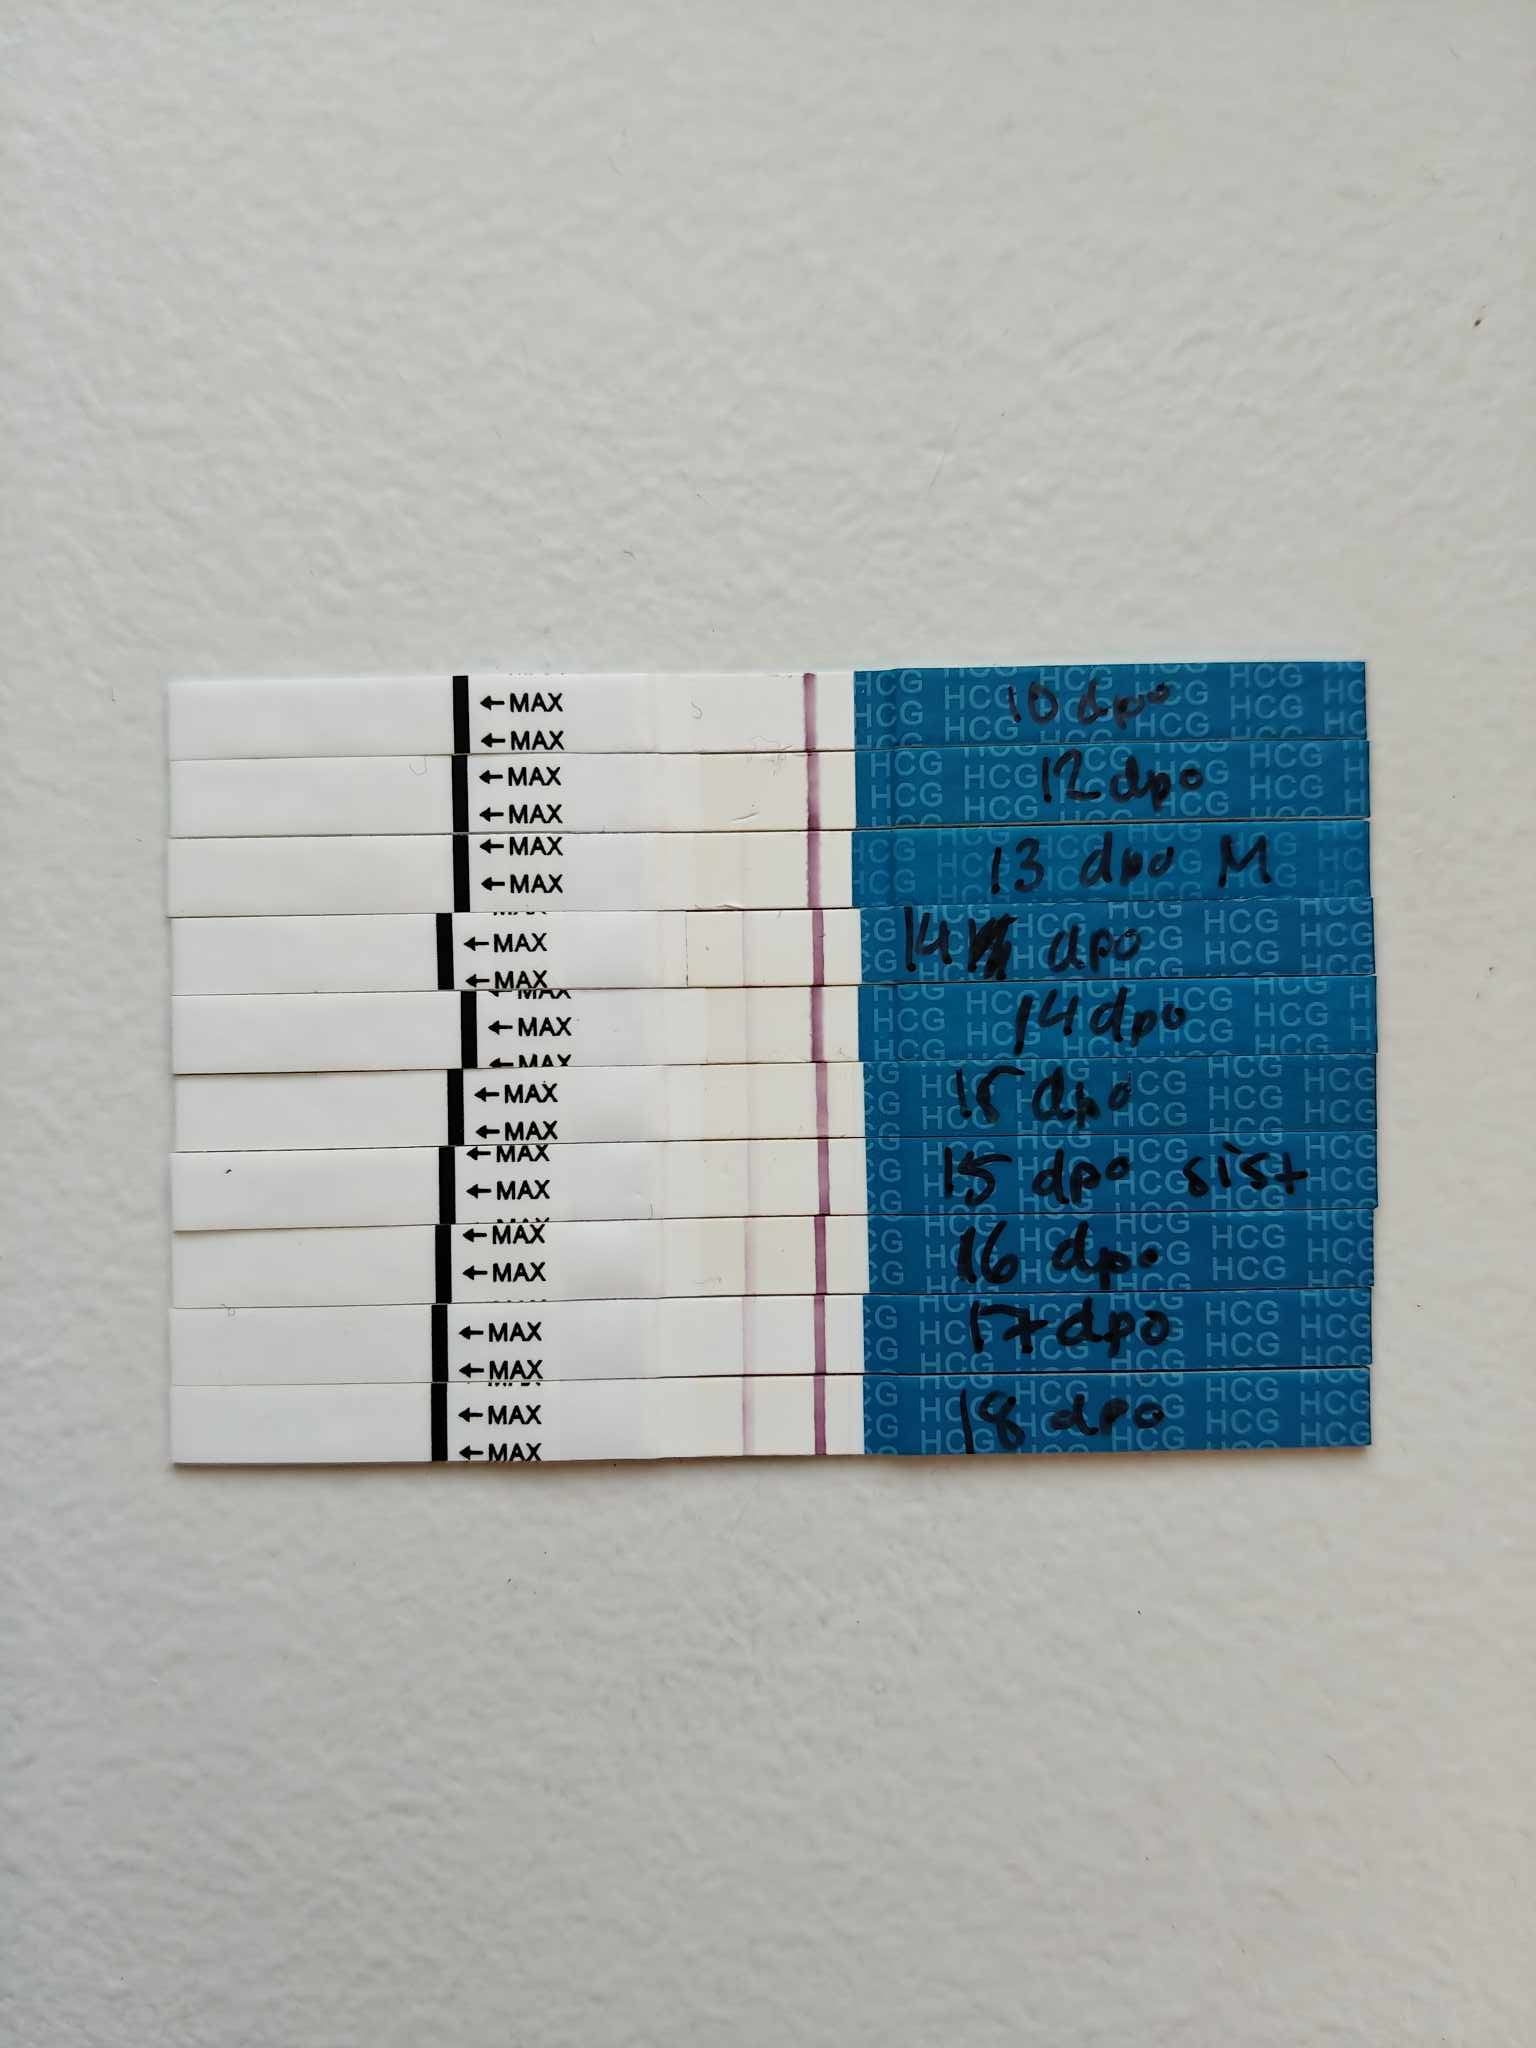 ←MAX
←MAX
HCG HCG HCG HCG HCG
10 dpo
←MAX
←MAX
HCG HCG HCG HCG HCG
12 dpo
←MAX
←MAX
HCG HCG HCG HCG HCG
13 dpo M
←MAX
←MAX
HCG HCG HCG HCG HCG
14 dpo
←MAX
←MAX
HCG HCG HCG HCG HCG
14 dpo
←MAX
←MAX
HCG HCG HCG HCG HCG
15 dpo
←MAX
←MAX
HCG HCG HCG HCG HCG
15 dpo sist
←MAX
←MAX
HCG HCG HCG HCG HCG
16 dpo
←MAX
←MAX
HCG HCG HCG HCG HCG
17 dpo
←MAX
←MAX
HCG HCG HCG HCG HCG
18 dpo